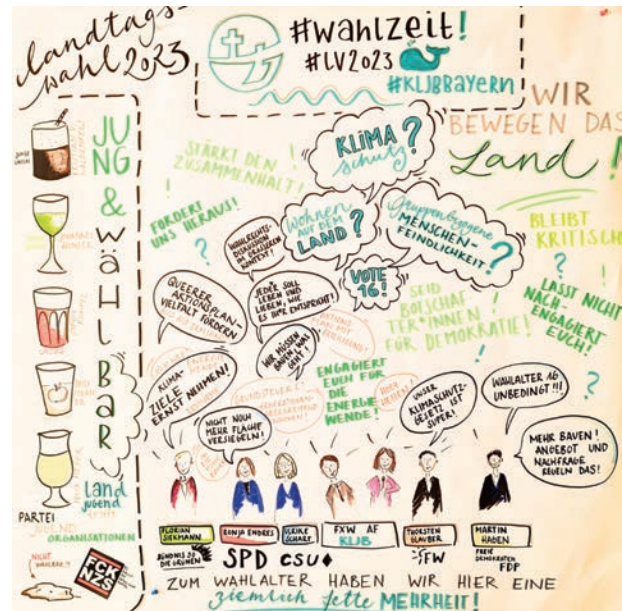 landtags-
wahl 2023
#wahlzeit!
#LV2023
#KLJBBayern
WIR
BEWEGEN DAS
Land!
JUNG
&
wählBAR
Landjugend
trifft
PARTEI
JUGEND
ORGANISATIONEN
NICHT
FCK
NZS
STÄRKT DEN
ZUSAMMENHALT!
FORDERT
UNS HERAUS!
KLIMA
schutz?
WOHNEN
AUF DEM
LAND?
Gruppenbezogene
MENSCHEN-
FEINDLICHKEIT?
VOTE
16!
BLEIBT
KRITISCH
LASST NICHT
NACH-
ENGAGIERT
EUCH!
SEID
BOTSCHAF-
TER*INNEN
FÜR DEMOKRATIE!
WAHLRECHTS-
DISKUSSION
IM GRÖSSEREN
KONTEXT!
QUEERER
AKTIONSPLAN-
VIELFALT FÖRDERN
JEDER SOLL
LEBEN UND
LIEBEN, WIE
ES IHM ENTSPRICHT!
WIR MÜSSEN
BAUEN, WAS
GEHT!
KLIMA-
ZIELE
ERNST NEHMEN!
NICHT NOCH
MEHR FLÄCHE
VERSIEGELN!
ENGAGIERT
EUCH FÜR
DIE
ENERGIE
WENDE!
UNSER
KLIMASCHUTZ-
GESETZ IST
SUPER!
WAHLALTER 16
UNBEDINGT!!!
MEHR BAUEN!
ANGEBOT UND
NACHFRAGE
REGELN DAS!
FLORIAN
SIEKMANN
RONJA ENDRES
ULRIKE
SCHARF
FXW AF
KLJB
THORSTEN
GLAUBER
MARTIN
HAGEN
BÜNDNIS 90
DIE GRÜNEN
SPD
CSU
FW
FREIE
DEMOKRATEN
FDP
ZUM WAHLALTER HABEN WIR HIER EINE
ziemlich fette MEHRHEIT!